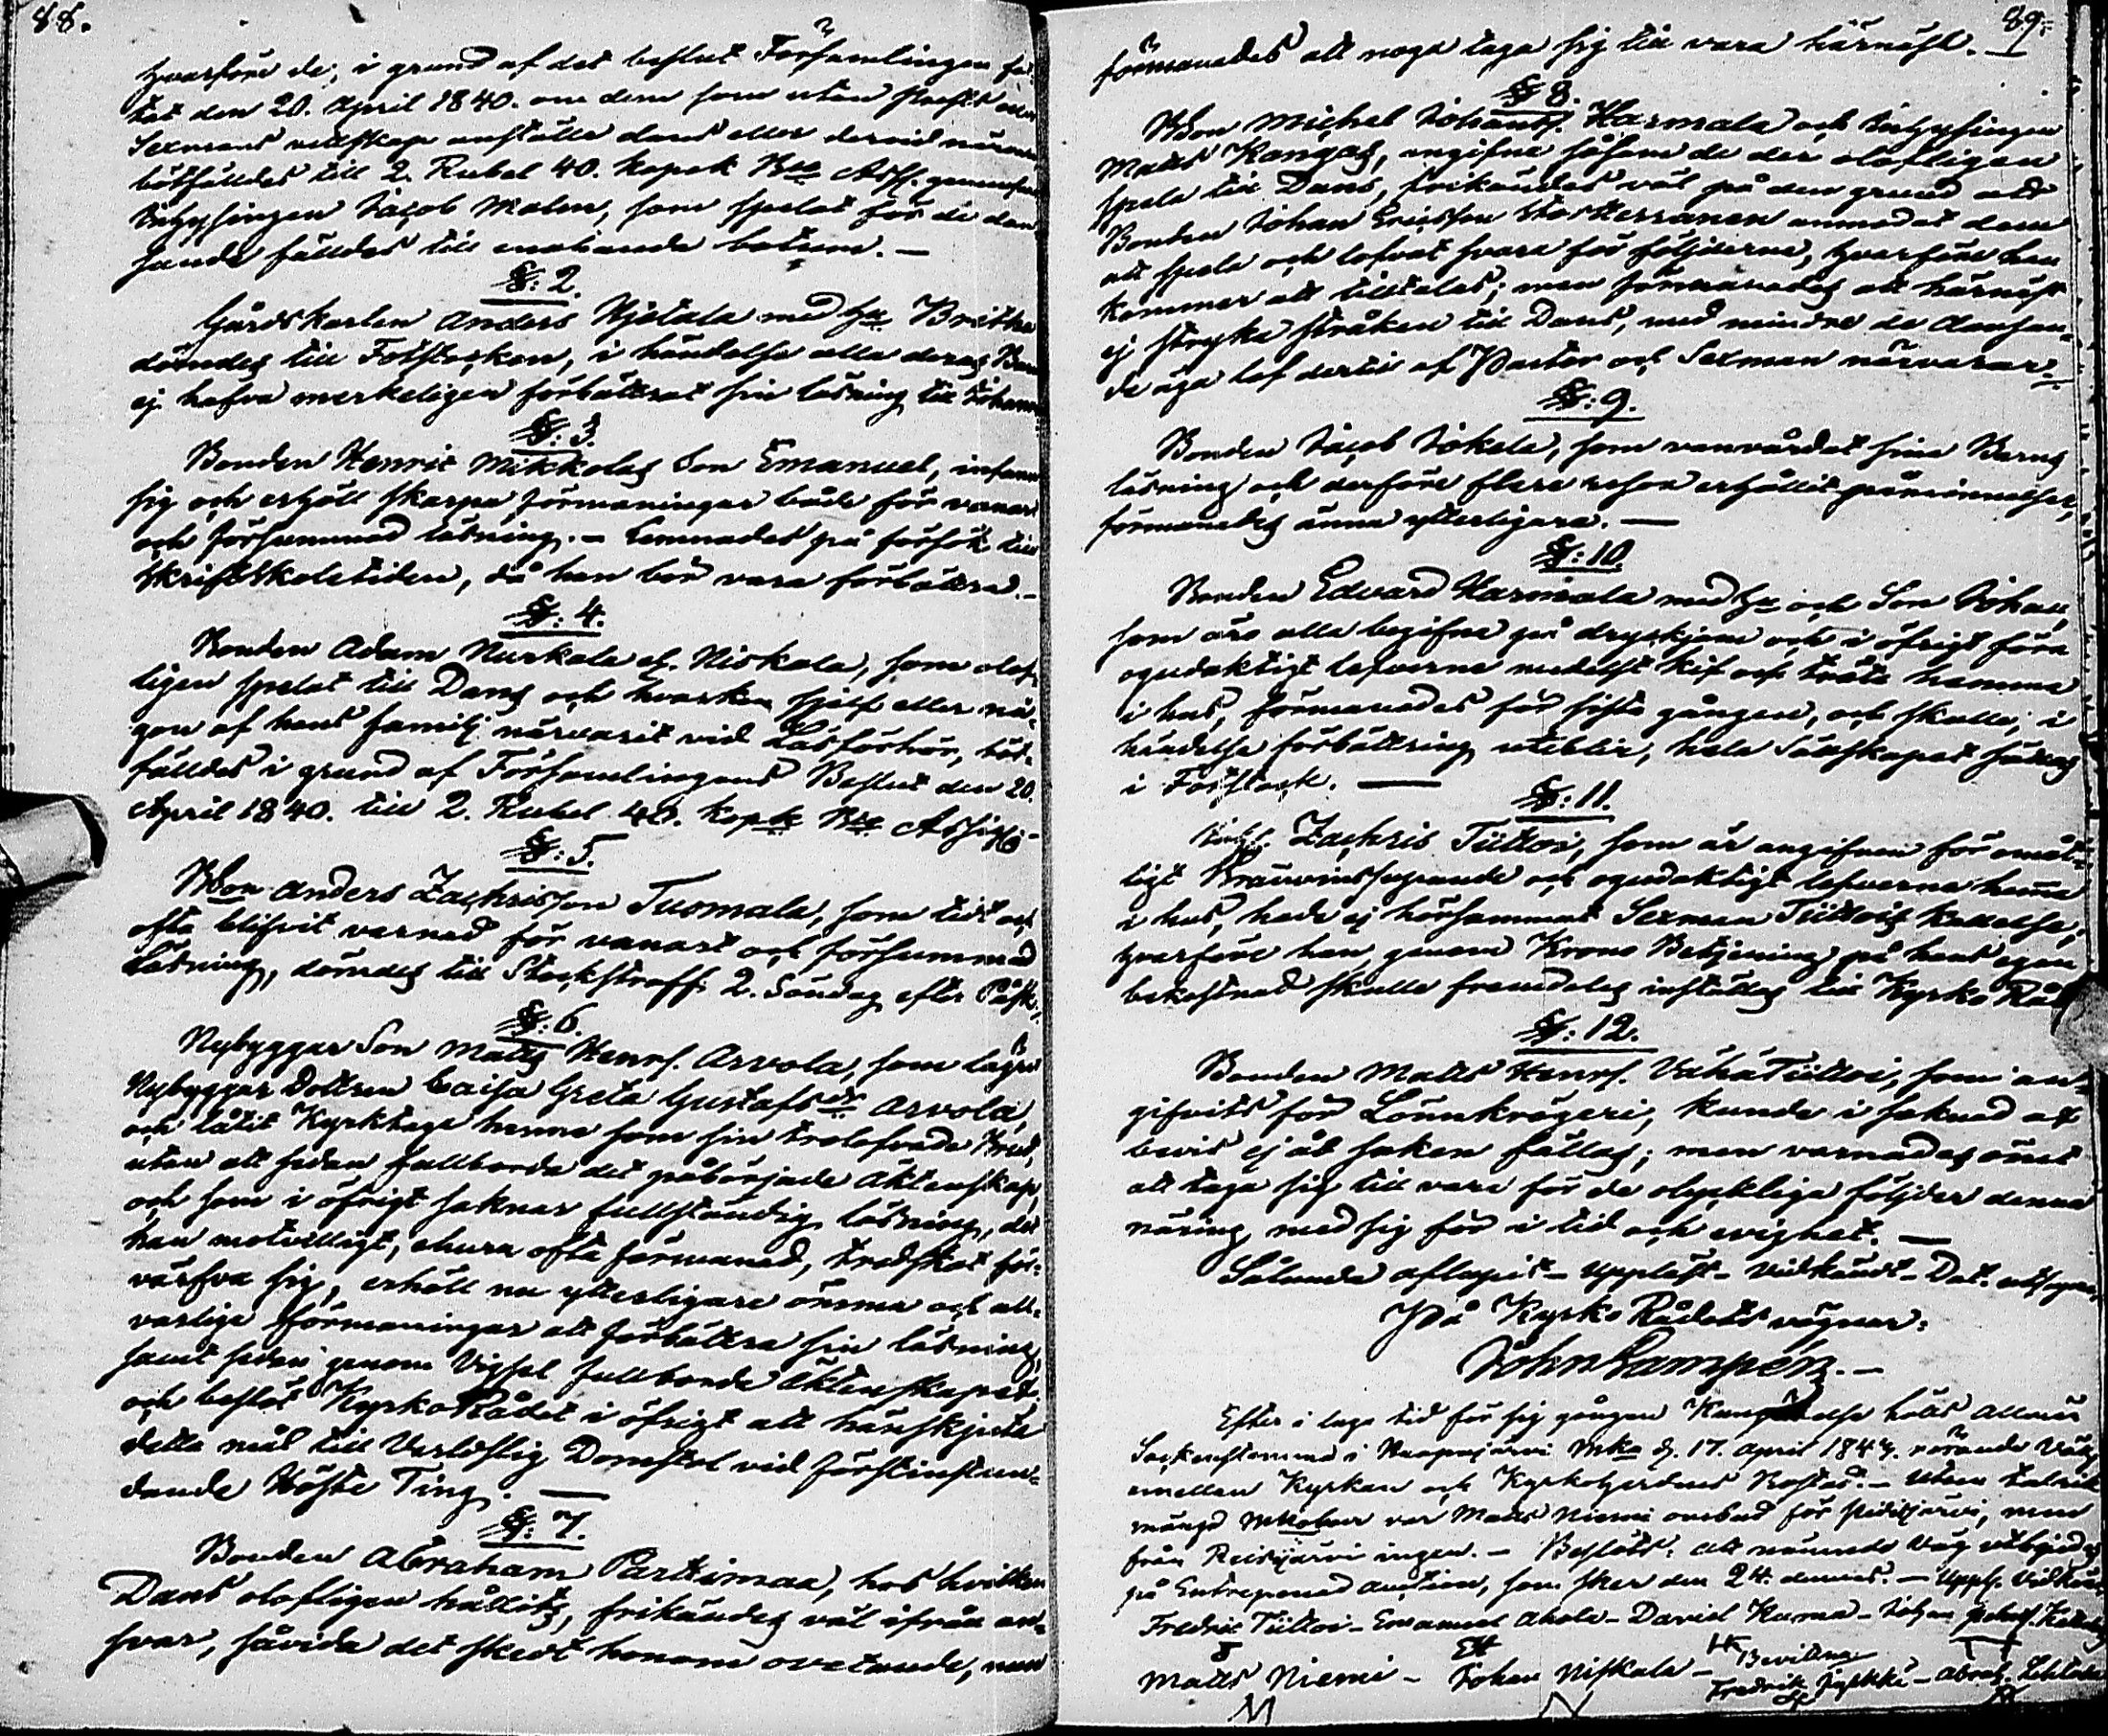 88.
hvarföre de, i grund af det beslut Församlingen fat-
tat den 20. April 1840. om dem som utan Prests eller
Sexmans vettskap anställa dans eller dervid närvara
bötfälldes till 2. Rubel 40. Kopek Bco Ass.
Inhysingen Jacob Malm, som spelat för de dan-
sande fälldes till enahanda botum. —
§: 2.
Gårdskarlen Anders Hjetala med hu Breitha
dömdes till Fotstocken, i händelse alla deras Barn
ej hafva merkeligen förbättrat sin läsning till Johanni
§: 3.
Bonden Henric Mikkolas Son Emanuel, infann
sig och erhöll skarpa förmaningar både för vanart
och försummad läsning. – Lemnades på försök till
Skriftskoletiden, då han bör vara förbättrad. –
§: 4.
Bonden Adam Nurkala el. Niskala, som olof-
ligen spelat till Dans och hvarken sjelf eller nå-
gon af hans familj närvarit vid Läsförhör, böt-
fälldes i grund af Församlingens Beslut den 20.
April 1840. till 2. Rubel 40. Kopk Bco Assign.
§: 5.
Bdon Anders Zachrisson Tuomala, som tidt och
ofta blifvit varnad för vanart och försummad
Läsning, dömdes till Stockstraff 2. Söndag efter Påsk.
§: 6.
Nybyggar Son Matts Henrs. Arvola, som lägrat
Nybyggar Dottren Caisa Greta Gustafsdr Arvola,
och låtit Kyrktaga henne som sin trolofvade Brud,
utan att sedan fullborda det påbörjade Äktenskap,
och som i öfrigt saknar fullständig läsning, det
han motvilligt, ehuru ofta förmanad, tredskat för-
värfva sig, erhöll nu ytterligare ömma och all-
varliga förmaningar att förbättra sin läsning,
samt sedan genom Vigsel fullborda Äktenskapet.
och beslöt KyrkoRådet i öfrigt att hänskjuta
detta mål till Verldslig Domstol vid förstinstun-
dande Höste Ting. —
§: 7.
Bonden Abraham Parttimaa, hos hvilken
Dans olofligen hållits, frikändes väl ifrån an-
svar, såvida det skedt honom ovetande, men
89.
förmanades att noga taga sig till vara härnäst. –
§ 8.
Bdon Michel Johans. Harmala och Inhysingen
Matts Kangas, angifne såsom de der olofligen
spela till Dans, frikändes väl på den grund att
Bonden Johan Ericsson anmodat dem
att spela och lofvat svara för följderne, hvarföre han
kommer att tilltalas; men förmanades att härnäst
ej stryka stråken till Dans, med mindre de dansan-
de äga lof dertill af Pastor och Sexman närvarar.
§: 9.
Bonden Jacob Jokela, som vanvårdat sina Barns
läsning och derföre flere resor erhållit påminnelser,
förmanades ännu ytterligare. —
§: 10.
Bonden Edvard Harmala med hu och Son Johan,
som äro alla begifne på dryckjom och i öfrigt föra
ogudaktigt lefverne medelst kif och träta hemma
i hus, förmanades för sista gången, och skulle, i
händelse förbättring uteblir, hela Sällskapet sättas
i Fotstock. —
§: 11.
Inhs. Zachris Tiittoi, som är angifven för omåt-
ligt Bränvinssupande och ogudaktigt lefverne hemma
i hus, hade ej hörsammat Sexman Tiittois kallelse,
hvarföre han genom Krono Betjening på hans egen
bekostnad skulle framdeles inställas till Kyrko Råd
§: 12.
Bonden Matts Henrs. VähäTiittoi, som an-
gifvits för Lönnkrögeri, kunde i saknad af
bevis ej åt saken fällas; men varnades ömt
att taga sig till vara för de olyckliga följder denna
näring med sig för i tid och evighet. —
Sålunda aflupit – Uppläst – Vidkändt – Dat. utsupra
På Kyrko Rådets vägnar:
John Lampén. –
Efter i laga tid för sig gången Kungörelse hölls Allmän
Sockenstämma i Haapajärvi Mka d. 17. April 1844. rörande Väg
emellan Kyrkan och Kyrkoherdens Bostad. – Utom talrik
mängd Mkoboer var Matts Niemi ombud för Pidisjärvi, men
från Reisjärvi ingen. – Beslöts: att nämnde Väg utbjudes
på Entreprenad Auction, som sker den 24. dennes. – Upps. Vidkänt
Fredric Tiittoi – Emanuel Ahola – David Kuma – Johan
Matts Niemi – Johan Niskala – Bevittna
Fredrik Jyrkkä – Abrah. Lehtola